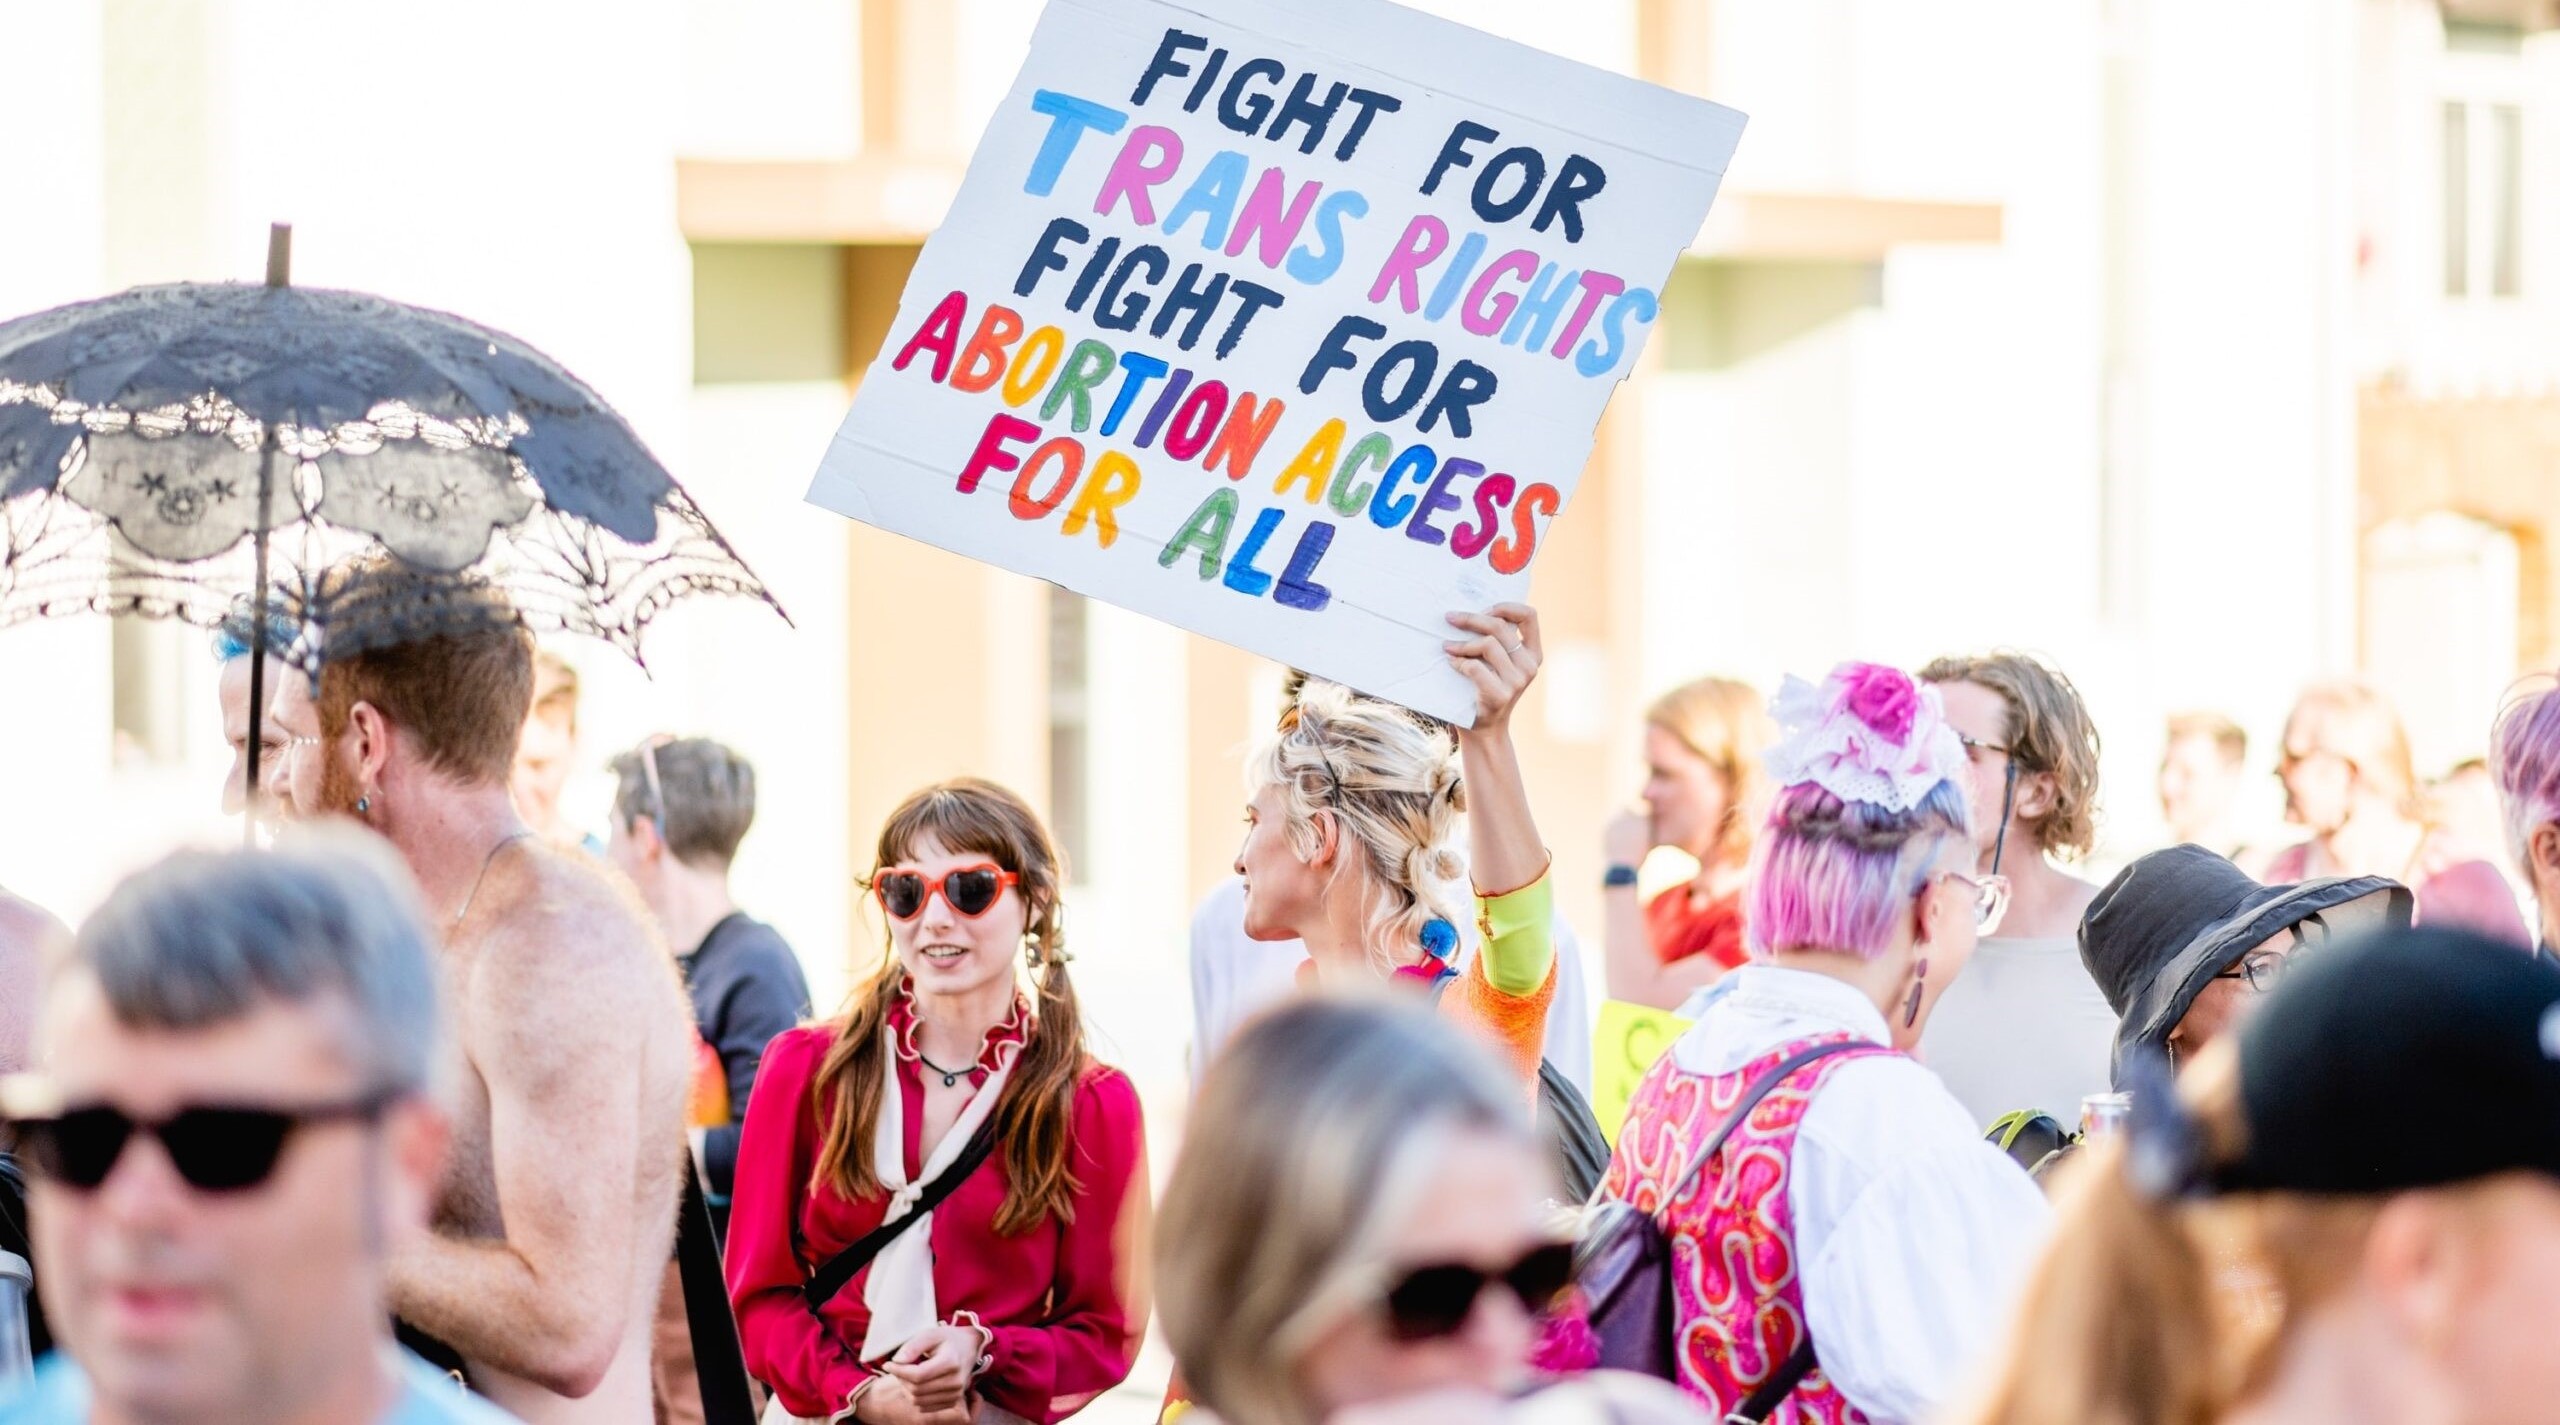 FIGHT FOR
TRANS RIGHTS
FIGHT FOR
ABORTION ACCESS
FOR ALL